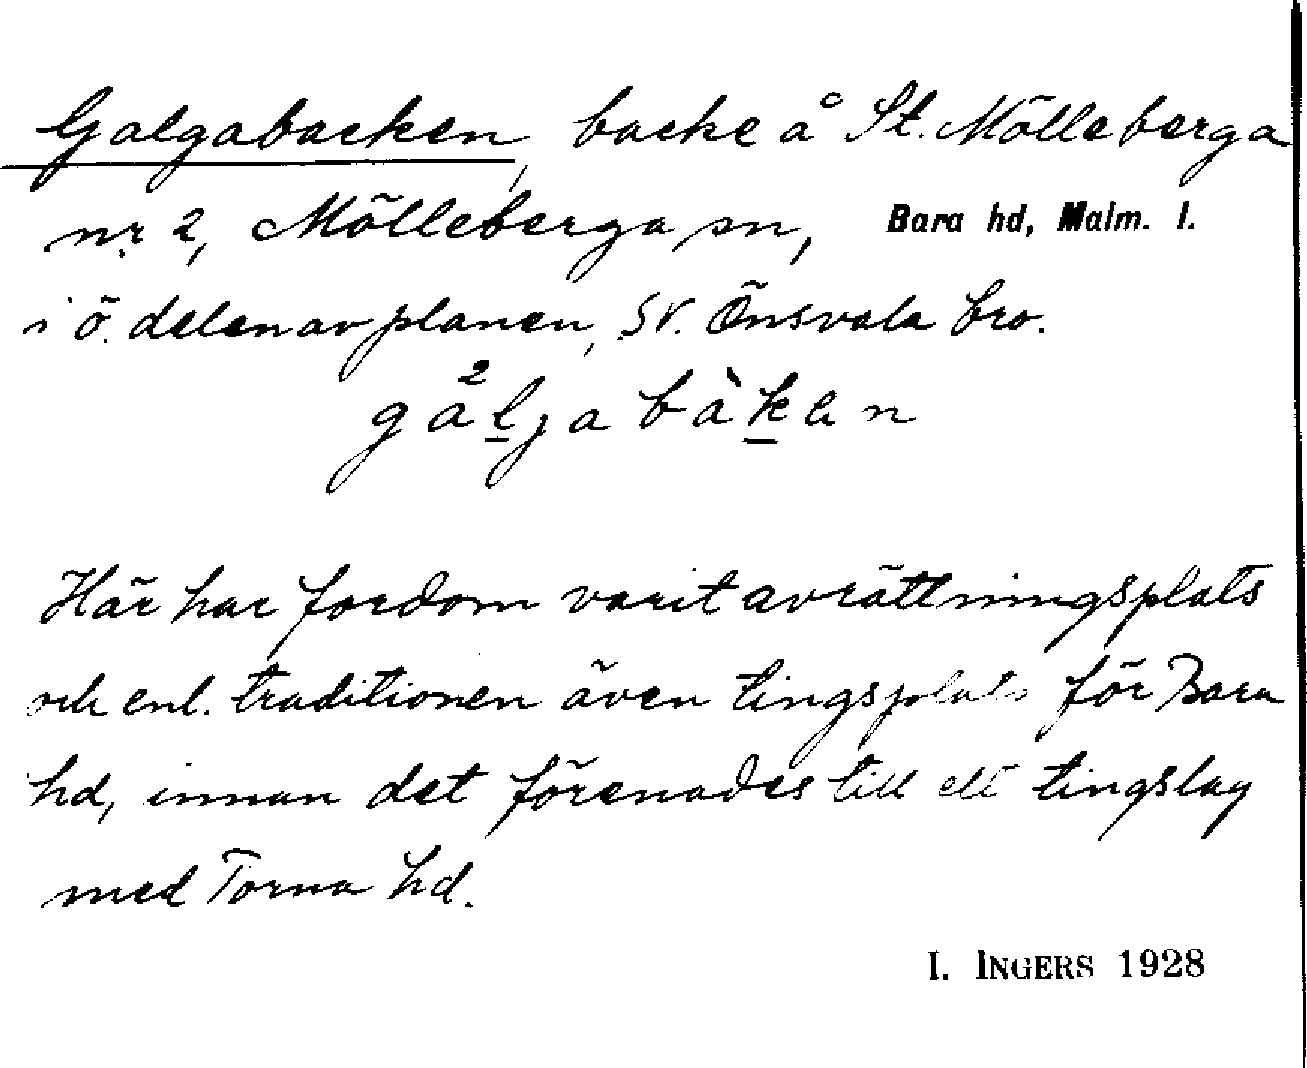 Galgabacken, backe å St. Mölleberga
nr 2, Mölleberga sn, Bara hd, Malm. l.
i ö. delen av planen, SV. Önsvala bro.
gål̠jabàk̠en
Här har fordom varit avrättningsplats
och enl. traditionen även tingsplats för Bara
hd, innan det förenades till ett tingslag
med Torna hd.
I. INGERS 1928